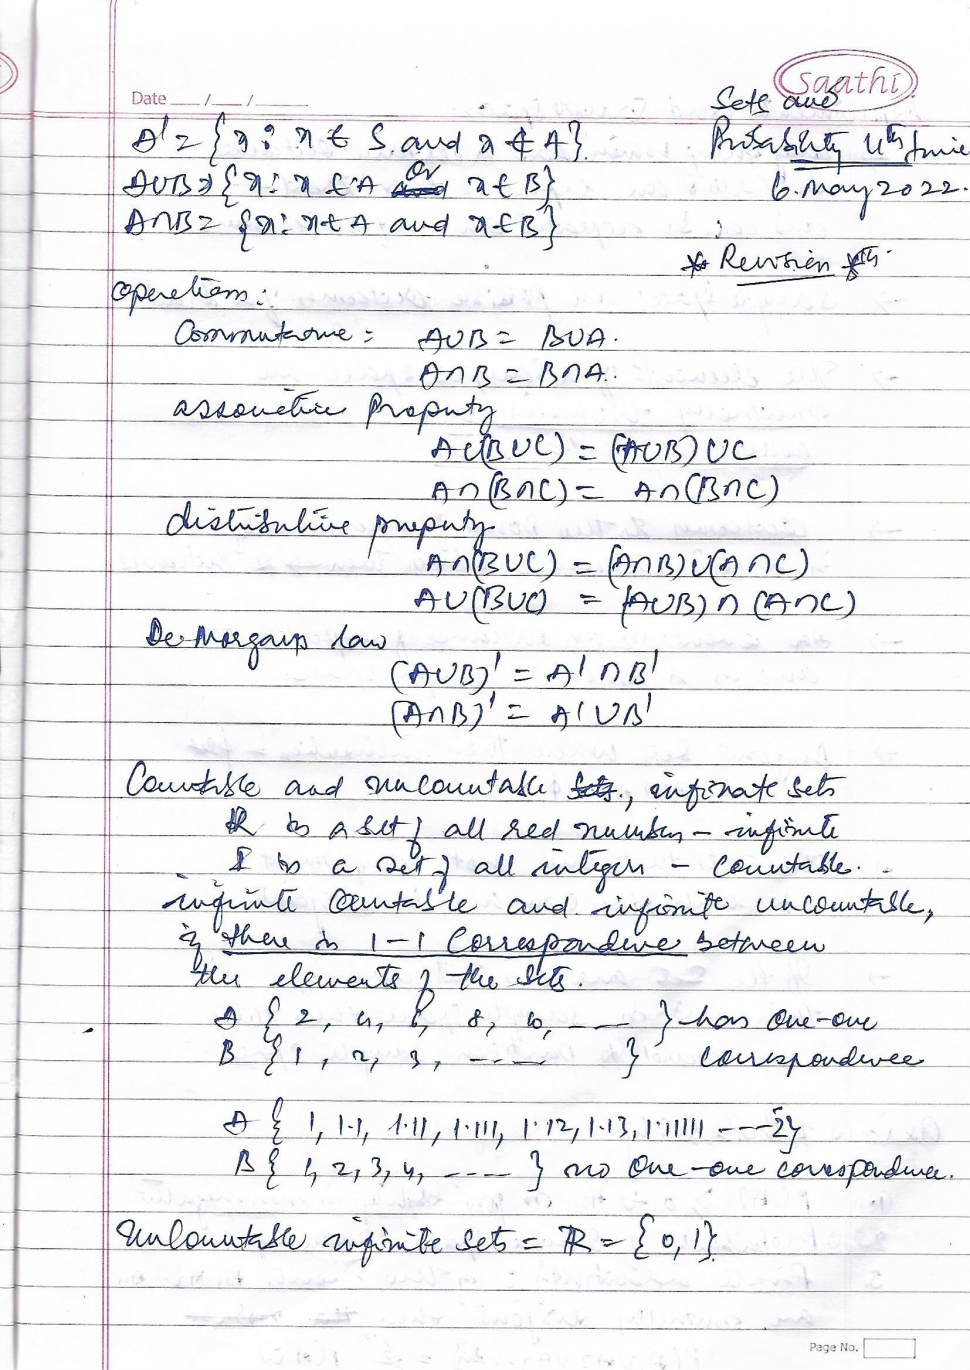 Saathi
Date __/__/____
Sets and
Probability 4th time
6. May 2022.
* Revision *th.
A' = {x : x ∈ S. and x ∉ A}.
A∪B = {x : x ∈ A or and x ∈ B}
A∩B = {x : x ∈ A and x ∈ B}
operations:
Commutative = A∪B = B∪A.
A∩B = B∩A.
associative Property
A∪(B∪C) = (A∪B)∪C
A∩(B∩C) = A∩(B∩C)
distributive property
A∩(B∪C) = (A∩B)∪(A∩C)
A∪(B∪C) = (A∪B)∩(A∩C)
De-Morgan's law
(A∪B)' = A'∩B'
(A∩B)' = A'∪B'
Countable and uncountable sets., infinate sets
R is a set of all real number - infinite
I is a set of all integers - countable.
infinite countable and infinite uncountable,
if there is 1-1 Correspondence between
the elements of the sets.
A {2, 4, 6, 8, 10, ---- } has one-one
B {1, 2, 3, ---- } correspondence
A {1, 1.1, 1.11, 1.111, 1.12, 1.13, 1.11111 ---- 2}
B {1, 2, 3, 4, ---- } no one-one correspondence.
Uncountable infinite sets = R = {0, 1}.
Page No.